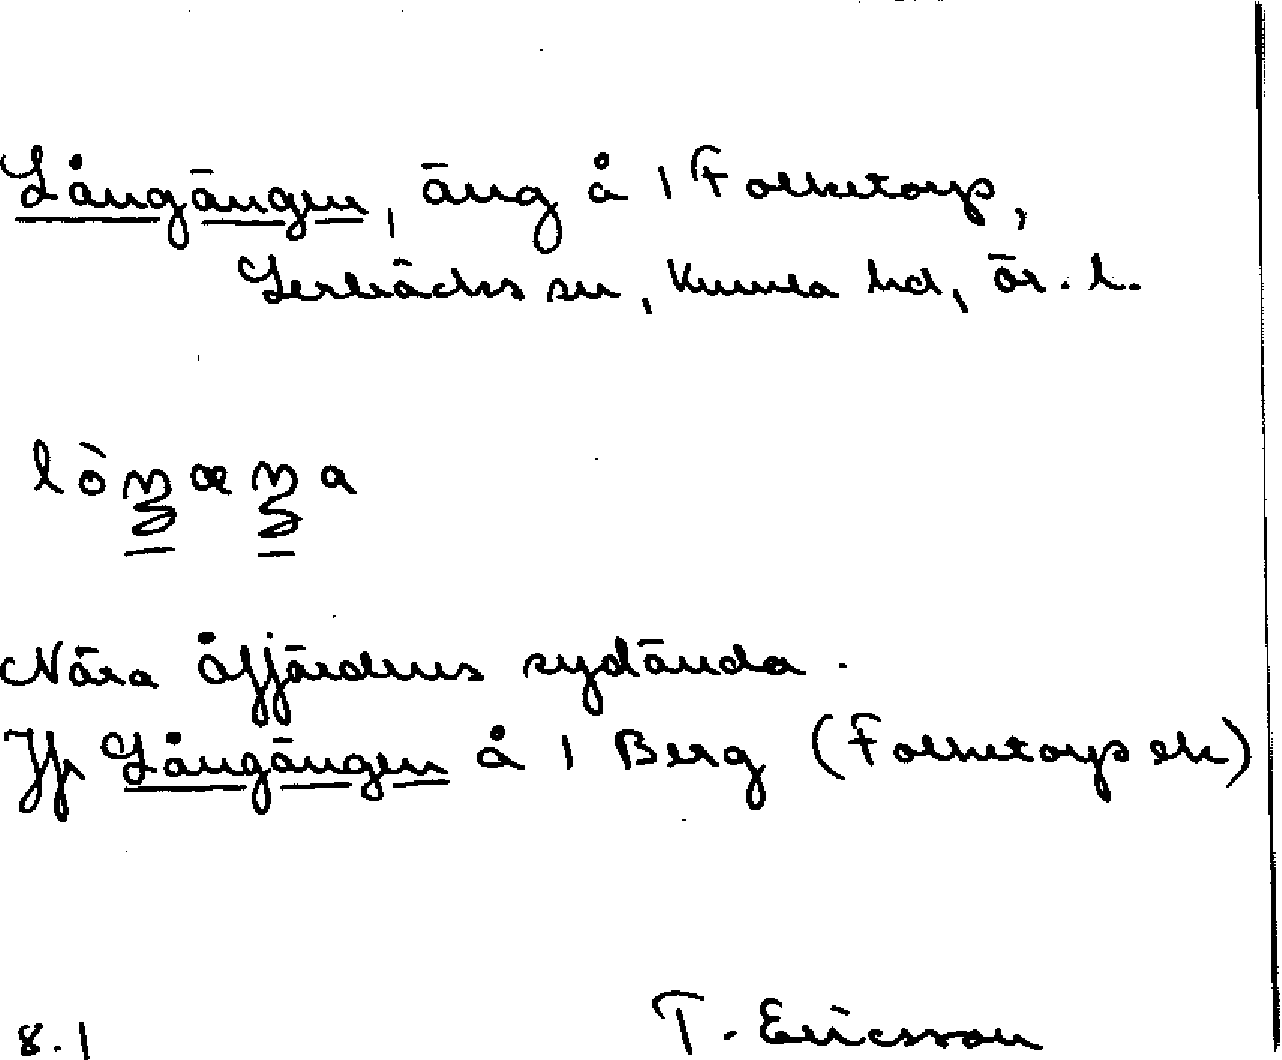 Långängen, äng å 1 Folketorp,
Lerbäcks sn, Kumla hd, Ör. l.
lòŋæŋa
Nära åfjärdens sydända.
Jfr Långängen å 1 Berg (Folketorps ek)
8.1 T. Ericsson